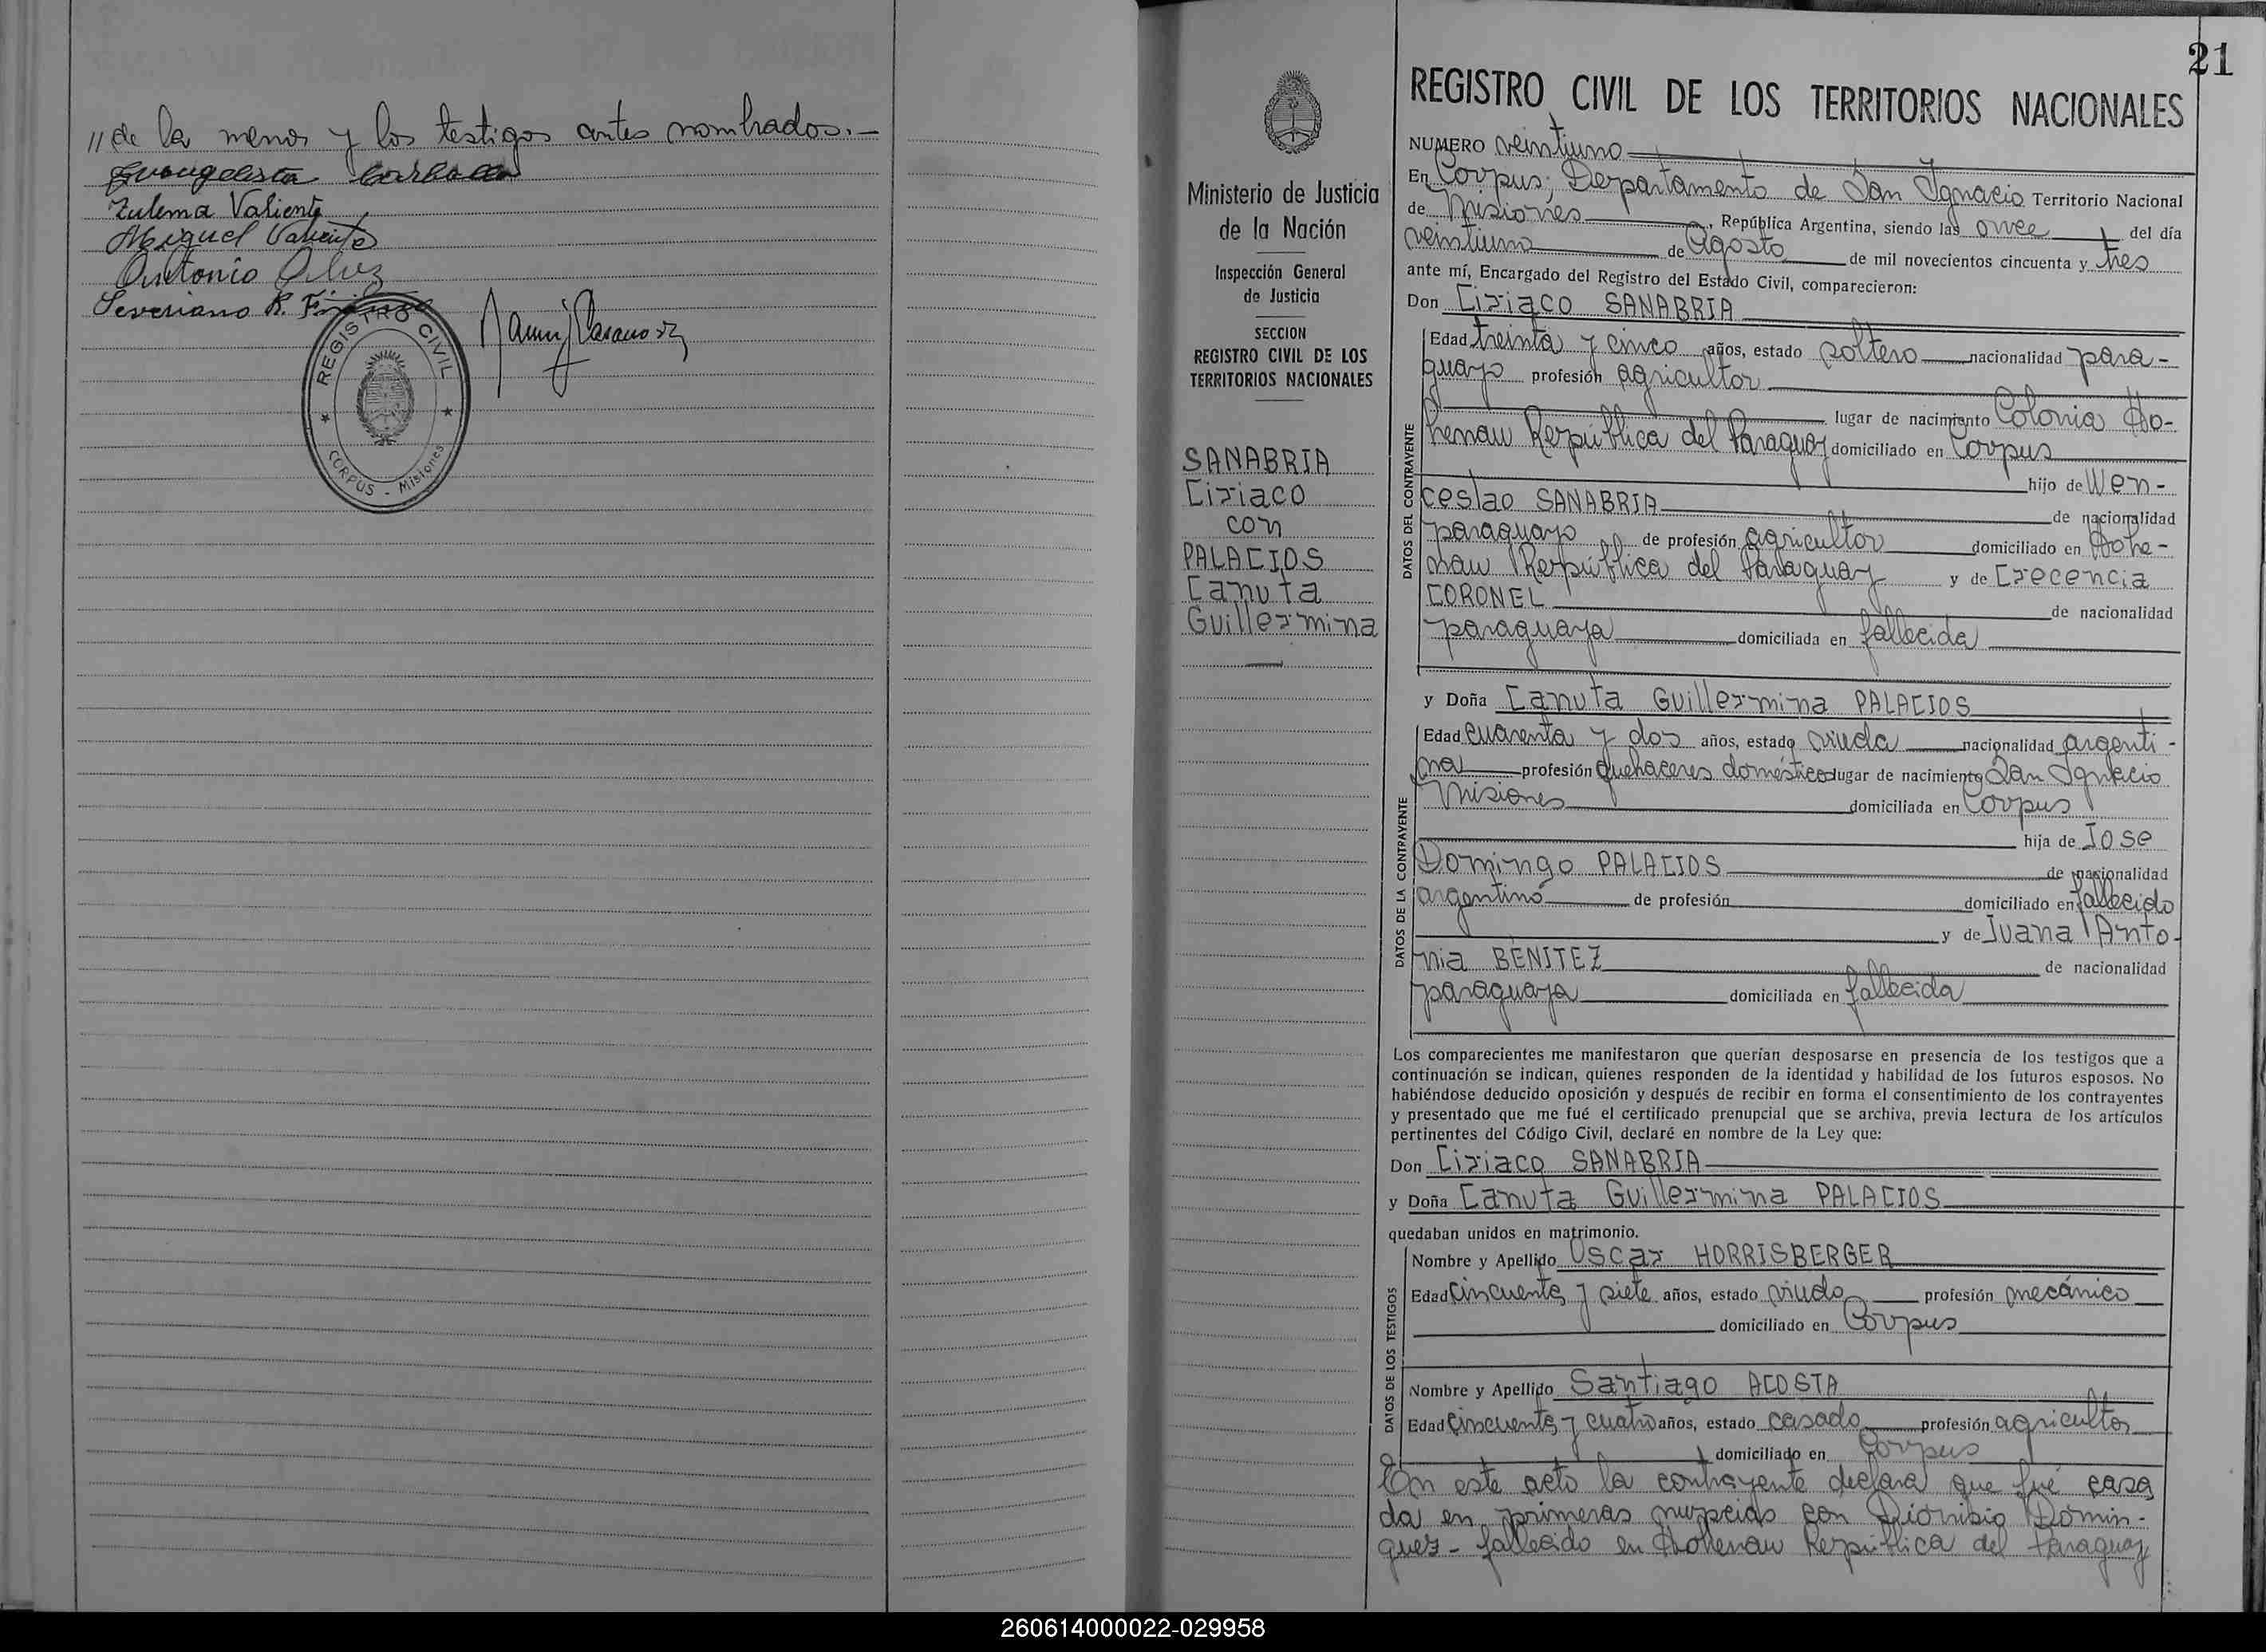 // de la menor y los testigos antes nombrados.—
Evangelista
Zulema Valiente
Miguel Valiente
Antonio
Severiano R.
REGISTRO CIVIL
CORPUS - Misiones
21
Ministerio de Justicia
de la Nación
Inspección General
de Justicia
SECCION
REGISTRO CIVIL DE LOS
TERRITORIOS NACIONALES
SANABRIA
Ciriaco
con
PALACIOS
Canuta
Guillermina
REGISTRO CIVIL DE LOS TERRITORIOS NACIONALES
NUMERO veintiuno
En Corpus, Departamento de San Ignacio Territorio Nacional
de Misiones, República Argentina, siendo las once del día
veintiuno de Agosto de mil novecientos cincuenta y tres
ante mí, Encargado del Registro del Estado Civil, comparecieron:
Don Ciriaco SANABRIA
DATOS DEL CONTRAYENTE
Edad treinta y cinco años, estado soltero nacionalidad para-
guayo profesión agricultor
lugar de nacimiento Colonia Ho-
henau República del Paraguay domiciliado en Corpus
hijo de Wen-
ceslao SANABRIA de nacionalidad
paraguayo de profesión agricultor domiciliado en Hohe-
nau República del Paraguay y de Crecencia
CORONEL de nacionalidad
paraguaya domiciliada en fallecida
y Doña Canuta Guillermina PALACIOS
DATOS DE LA CONTRAYENTE
Edad cuarenta y dos años, estado viuda nacionalidad argenti-
na profesión quehaceres domésticos lugar de nacimiento San Ignacio
Misiones domiciliada en Corpus
hija de Jose
Domingo PALACIOS de nacionalidad
argentino de profesión domiciliado en fallecido
y de Juana Anto-
nia BENITEZ de nacionalidad
paraguaya domiciliada en fallecida
Los comparecientes me manifestaron que querían desposarse en presencia de los testigos que a
continuación se indican, quienes responden de la identidad y habilidad de los futuros esposos. No
habiéndose deducido oposición y después de recibir en forma el consentimiento de los contrayentes
y presentado que me fué el certificado prenupcial que se archiva, previa lectura de los artículos
pertinentes del Código Civil, declaré en nombre de la Ley que:
Don Ciriaco SANABRIA
y Doña Canuta Guillermina PALACIOS
quedaban unidos en matrimonio.
DATOS DE LOS TESTIGOS
Nombre y Apellido Oscar HORRISBERGER
Edad cincuenta y siete años, estado viudo profesión mecánico
domiciliado en Corpus
Nombre y Apellido Santiago ACOSTA
Edad cincuenta y cuatro años, estado casado profesión agricultor
domiciliado en Corpus
En este acto la contrayente declara que fué casa
da en primeras nupcias con Dionisio Domin-
guez - fallecido en Hohenau República del Paraguay
260614000022-029958